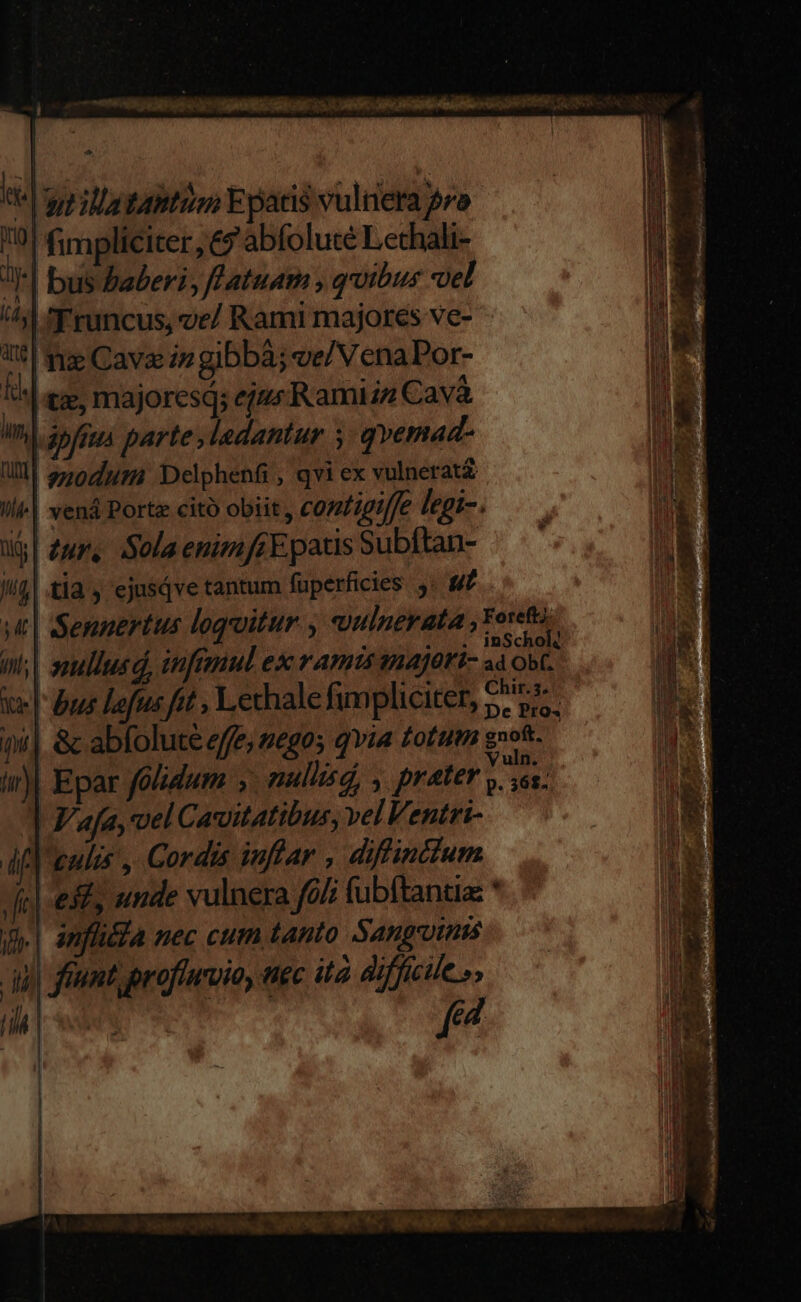 ut illa tantùm Epatis vulnera pro
ſimpliciter, & abſolutè Lethali-
bus haberi, ſtatuam, qvibus vel
Truncus, vel Rami majores Ve-
næ Cavæ in gibbâ; vel Vena Por-
tæ, majoresq́; ejus Rami in Cavâ
ipſius parte, lædantur; qvemad-
modum Delphenſi, qvi ex vulneratâ
venâ Portæ citò obiit, contigiſſe legi-
tur. Sola enim ſi Epatis Subſtan-
tia, ejusq́ve tantum ſuperficies, ut
Sennertus loqvitur, vulnerata,
nullusq́, inſimul ex ramis majori-
bus læſus ſit, Lethale ſimpliciter,
& abſolutè eſſe, nego; qvia totum
Epar ſolidum, nullisq́, præter
Vaſa, vel Cavitatibus, vel Ventri-
culis, Cordis inſtar, diſtinctum
eſt, unde vulnera ſoli ſubſtantiæ
inflicta nec cum tanto Sangvinis
fiunt profluvio, nec ità difficile,
ſed
Foreſt.
inSchol.
ad Obſ.
Chir. 3.
De Pro-
gnoſt.
Vuln.
p. 368.